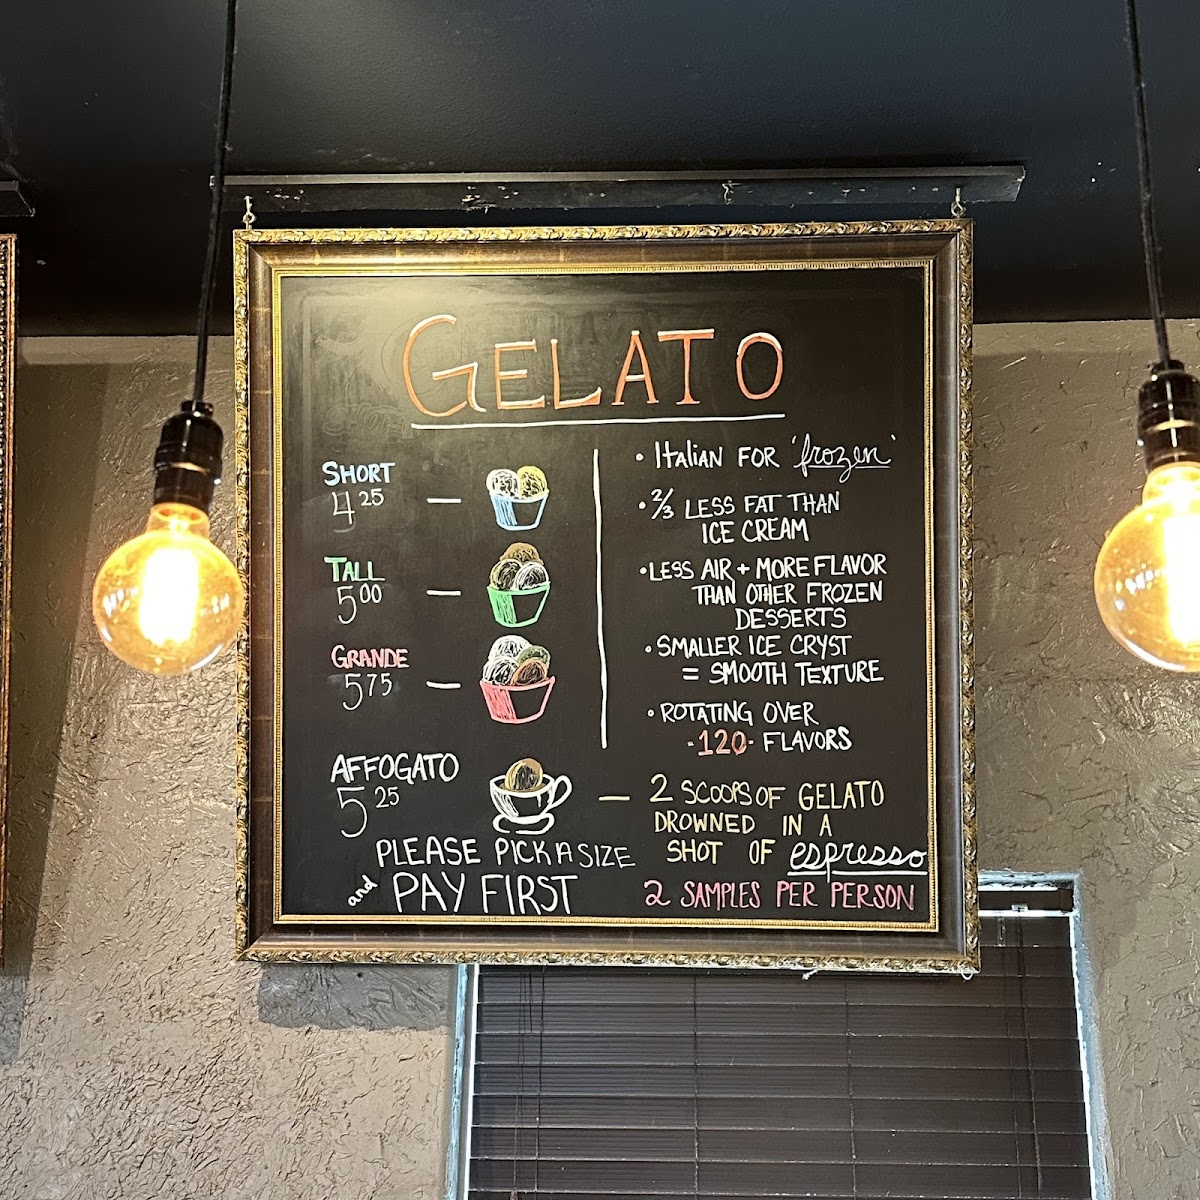 GELATO
SHORT
4 25
TALL
5 00
GRANDE
5 75
• Italian FOR 'frozen'
• 2/3 LESS FAT THAN
ICE CREAM
• LESS AIR + MORE FLAVOR
THAN OTHER FROZEN
DESSERTS
• SMALLER ICE CRYST
= SMOOTH TEXTURE
• ROTATING OVER
-120- FLAVORS
AFFOGATO
5 25
— 2 SCOOPS OF GELATO
DROWNED IN A
SHOT OF espresso
PLEASE PICK A SIZE
and PAY FIRST
2 SAMPLES PER PERSON